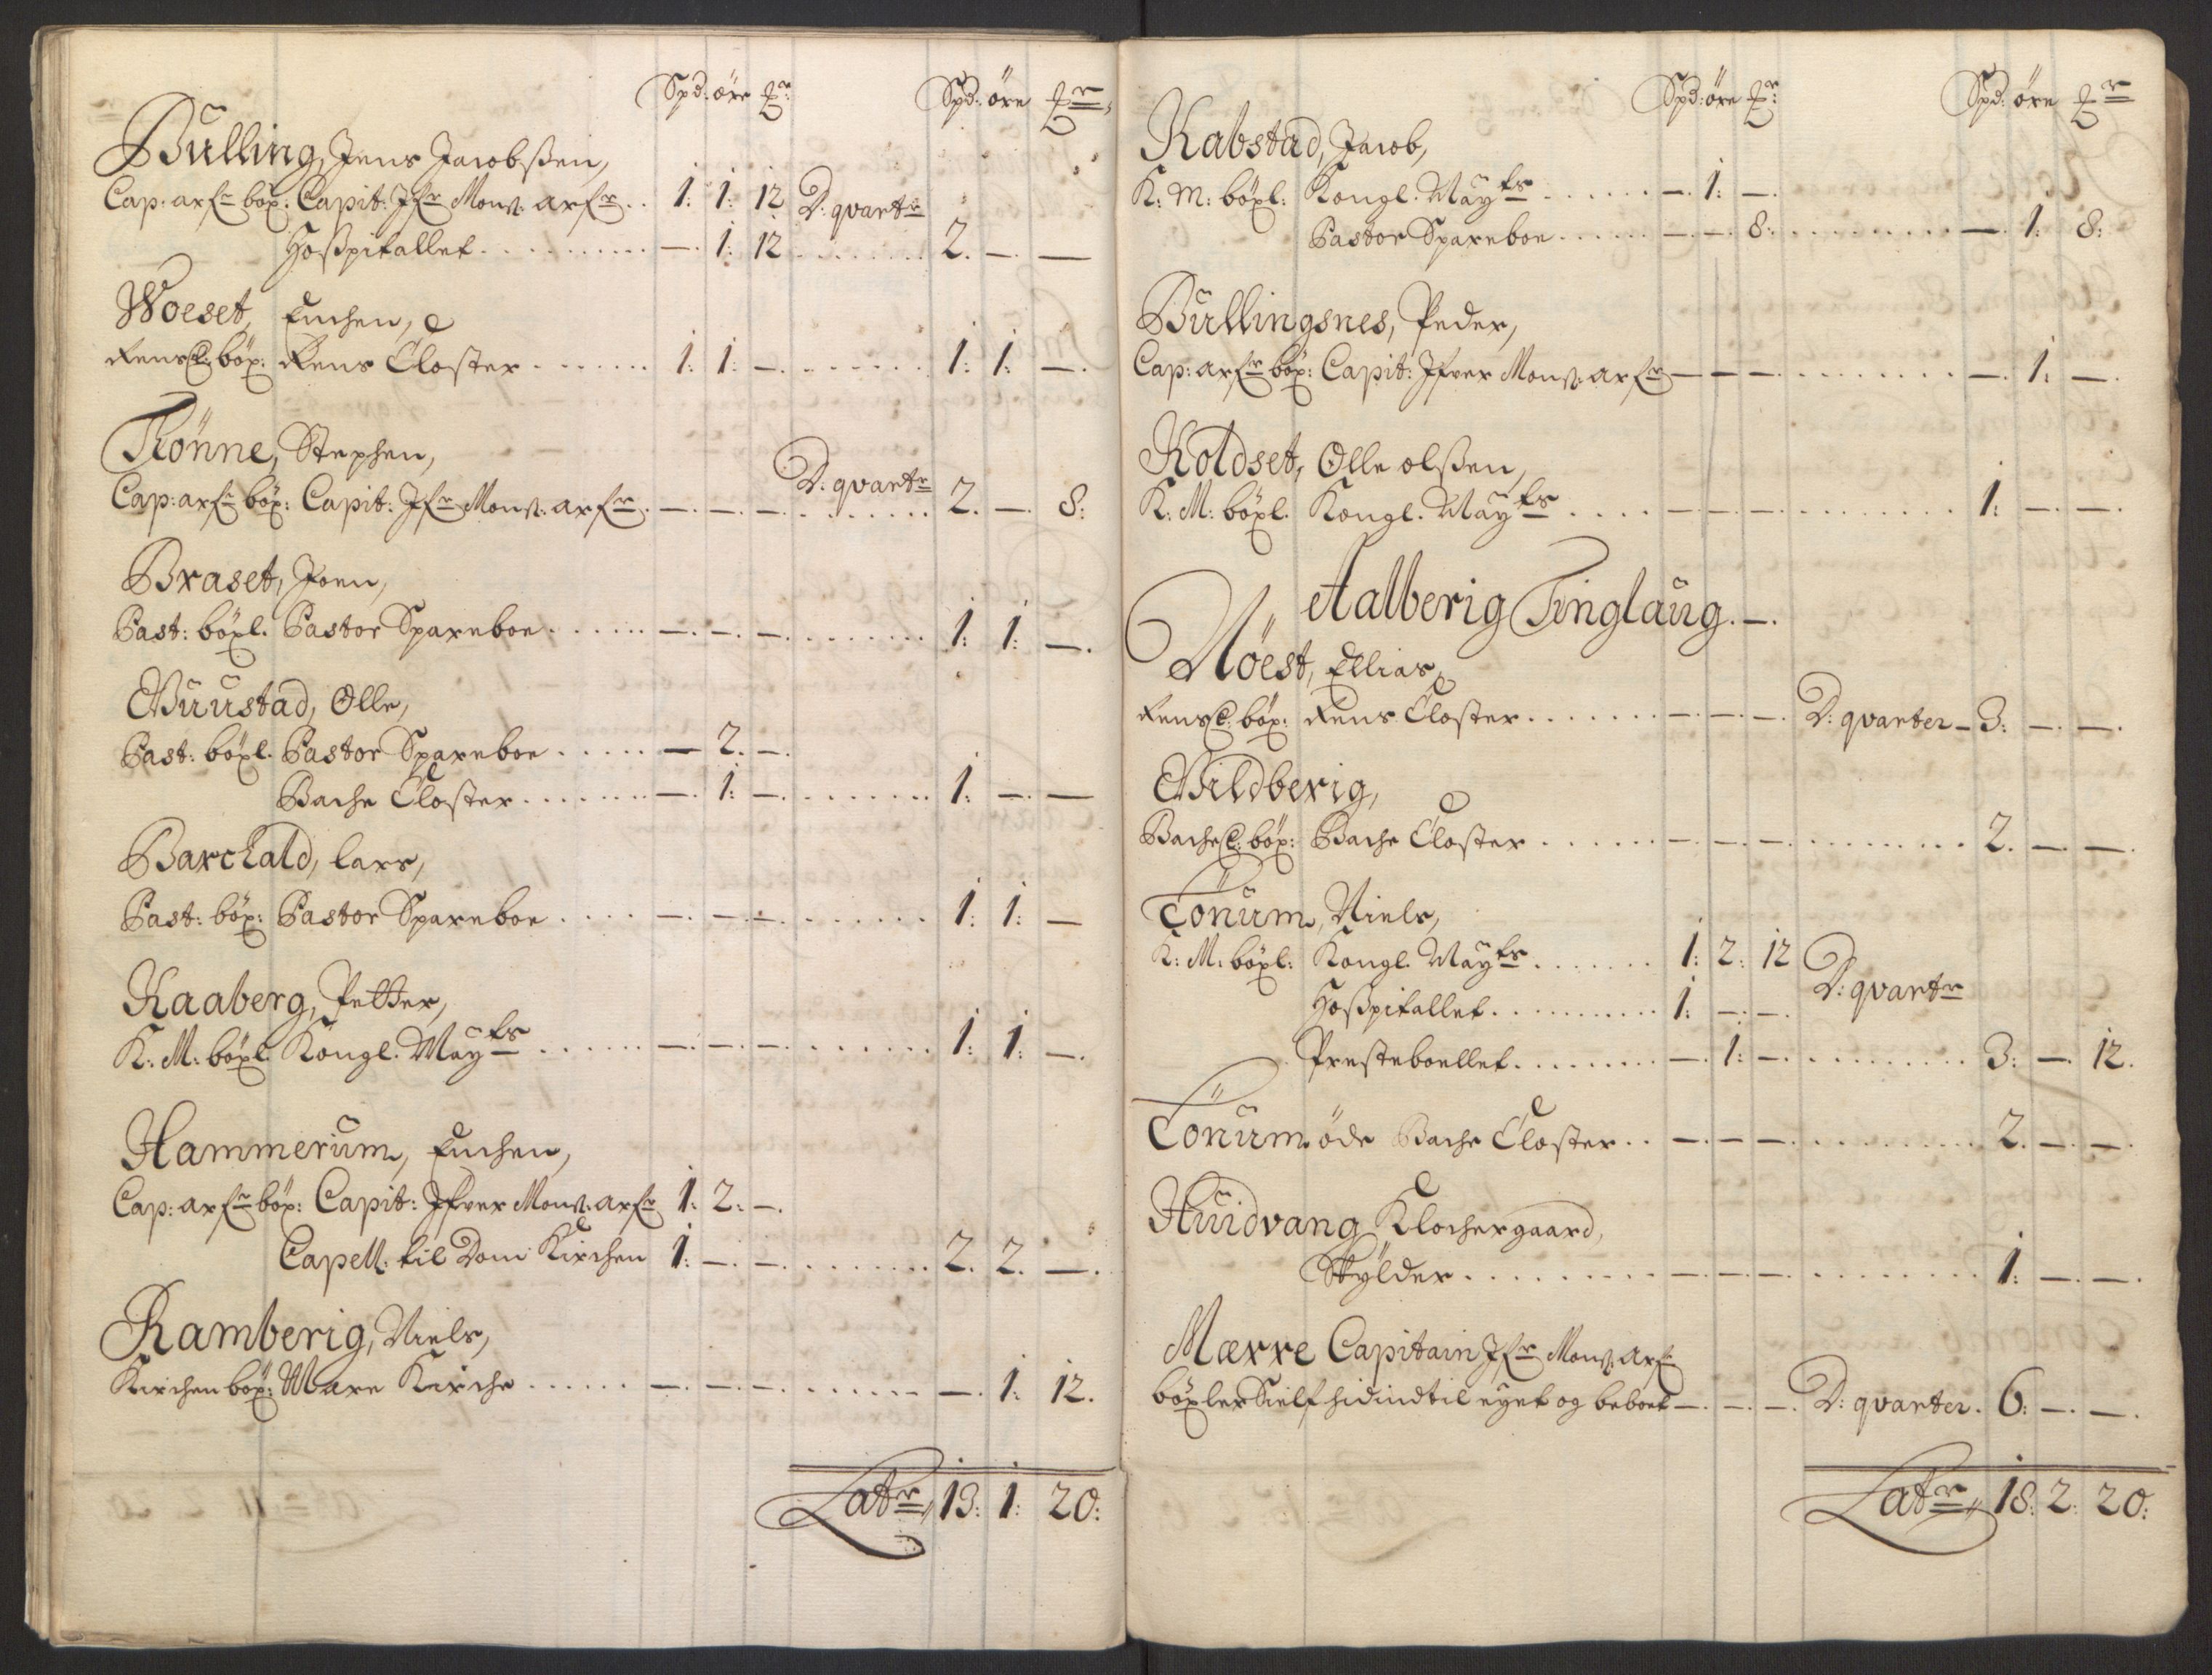 Spd: öre &r:
Spd: öre &r:
Bulling, Jens Jacobßen,
Cap: arfr böx: Capit: Jfr Monß: arfr . . 1: 1: 12 D: qvartr
Hoßpitallet . . . . . . . . . — 1: 12 . . . . . . . 2. —. —
Woeset, Enchen,
Rens Cl: böx: Rens Closter . . . . . . . 1: 1: —. . . . . . . . 1: 1: —.
Rönne, Stephen,
Cap: arfr böx: Capit: Jfr Monß: arfr. —. —. —. D: qvartr 2. —. 8:
Braset, Joen,
Past: böxl. Pastor Spareboe . . . . . —. —. —. . . . . . . . 1: 1: —.
Wuustad, Olle,
Past: böxl. Pastor Spareboe . . . . . — 2. —.
Bache Closter . . . . . . . —. 1: —. . . . . . . . 1: —. —
Barchald, Lars,
Past: böx: Pastor Spareboe . . . . —. —. —. . . . . . . . 1: 1: —
Raaberg, Petter,
K: M: böxl. Kongl. Mayts . . . . . —. —. —. . . . . . . 1: 1: —.
Hammerum, Enchen,
Cap: arfr böx: Capit: Jfver Monß: arfr 1: 2: —.
Capell. til Dom Kirchen 1: —. —. . . . . . . . 2. 2. —.
Ramberig, Niels,
Kirchen böx: Mære Kirche . . . . . —. —. —. . . . . . . . —. 1: 12.
Latr 13: 1: 20:
Spd: öre &r:
Spd: öre &r
Kabstad, Jacob,
K: M: böxl: Kongl. Mayts . . . . . . —. 1: —.
Pastor Spareboe . . . . . —. —. 8: . . . . . . . . —. 1: 8:
Bullingsnes, Peder,
Cap: arfr böx: Capit: Jfver Monß: arfr — — —. . . . . . . . —. 1: —.
Koldset, Olle olßen,
K: M: böxl. Kongl. Mayts . . . . —. —. —. . . . . . . . . 1: —. —.
Aalberig Tinglaug. —.
Nöest, Ellias,
Rens Cl: böx: Rens Closter . . . . . . . —. —. —. D: qvarter — 3: —. —.
Wildberig,
Bache Cl: böx: Bache Closter . . . . . . —. —. —. . . . . . . . . 2. —. —.
Tönum, Niels,
K: M: böxl: Kongl. Mayts . . . . . . . 1: 2: 12 D: qvartr
Hoßpitallet . . . . . . . . . . 1: —. —.
Presteboellet . . . . . . . . —. 1: —. . . . . . . . . . 3: —. 12.
Tönum öde Bache Closter . . —. —. —. . . . . . . . . . 2. —. —.
Huidvang Klochergaard,
Skylder . . . . . . . . . —. —. —. . . . . . . . . . 1: —. —.
Mærre Capitain Jfr Monß: arfr
böxler Sielf hid ind til eyet og beboet —. —. —. D: qvarter. 6: —. —.
Latr 18: 2: 20: